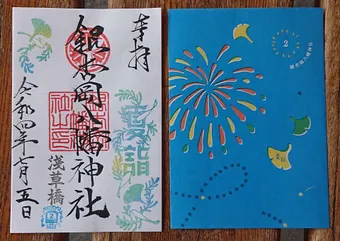 奉拝
銀杏岡八幡神社
夏詣
浅草橋
令和四年七月五日
2